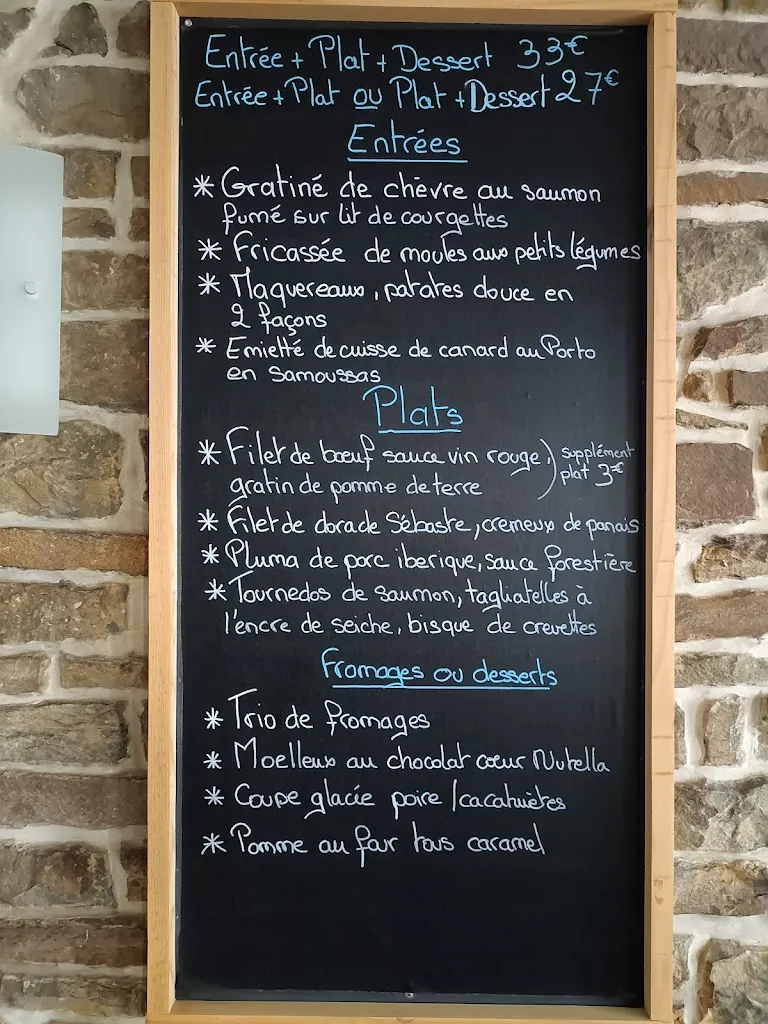 Entrée + Plat + Dessert 33€
Entrée + Plat ou Plat + Dessert 27€
Entrées
* Gratiné de chèvre au saumon
fumé sur lit de courgettes
* Fricassée de moules aux petits légumes
* Maquereaux, patates douce en
2 façons
* Emietté de cuisse de canard au Porto
en Samoussas
Plats
* Filet de bœuf sauce vin rouge,) supplément
gratin de pomme de terre plat 3€
* Filet de dorade Sébaste, crémeux de panais
* Pluma de porc iberique, sauce forestière
* Tournedos de saumon, tagliatelles à
l'encre de seiche, bisque de crevettes
Fromages ou desserts
* Trio de fromages
* Moelleux au chocolat cœur Nutella
* Coupe glacée poire / cacahuètes
* Pomme au four caramel